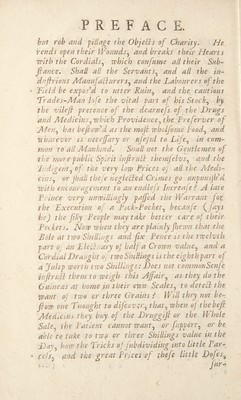 PREFACE.
but rob and pillage the Objects of Charity. He
rends open their Wounds, and breaks their Hearts
with the Cordials, which consume all their Sub-
stance. Shall all the Servants, and all the in-
dustrious Manufacturers, and the Labourers of the
Field be expos'd to utter Ruin, and the cautious
Trades-Man lose the vital part of his Stock, by
the vilest pretence of the dearness of the Drugs
and Medicins, which Providence, the Preserver of
Men, has bestow'd as the most wholsome Food, and
whatever is necessary or useful to Life, in com-
mon to all Mankind. Shall not the Gentlemen of
the more public Spirit instruct themselves, and the
Indigent, of the very low Prices of all the Medi-
cins, or shall their neglected Crimes go unpunish'd
with encouragement to an endless Increase? A late
Prince very unwillingly passed the Warrant for
the Execution of a Pick-Pocket, because (says
he) the silly People may take better care of their
Pockets. Now when they are plainly shewn that the
Bole at two Shillings and six Pence is the twelvth
part of an Electuary of half a Crown value, and a
Cordial Draught of two Shillings is the eighth part of
a Julep worth two Shillings: Does not common Sense
instruct them to weigh this Affair, as they do the
Guineas at home in their own Scales, to detect the
want of two or three Grains? Will they not be-
stow one Thought to discover, that, when of the best
Medicins they buy of the Druggist or the Whole
Sale, the Patient cannot want, or support, or be
able to take to two or three Shillings value in the
Day, how the Tricks of subdividing into little Par-
cels, and the great Prices of these little Doses,